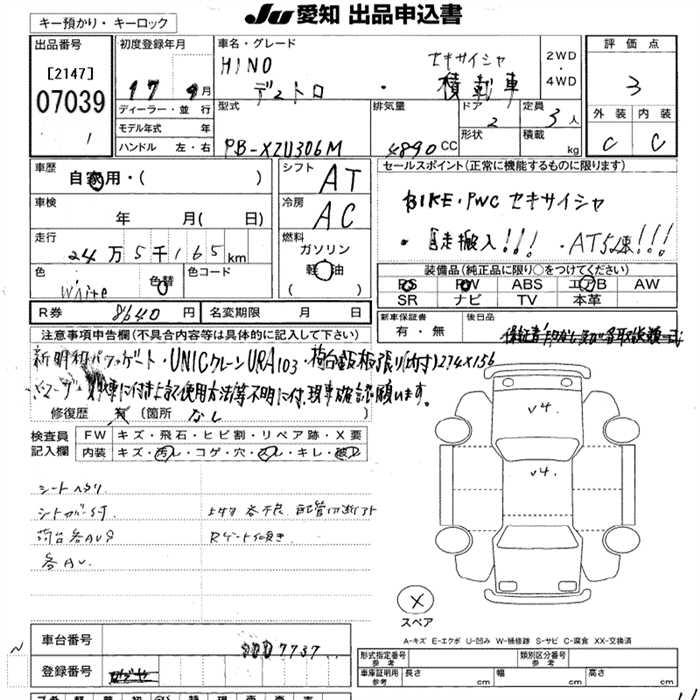 キー預かり・キーロック
JU 愛知 出品申込書
出品番号
[2147]
07039
初度登録年月
17 年 9 月
ディーラー・並 行
モデル年式 年
ハンドル 左・右
車名・グレード
HINO
デュトロ
セキサイシャ
積載車
2WD
4WD
型式
PB-XZU306M
排気量
4890 CC
ドア
2
形状
定員
3 人
積載
kg
評価点
3
外装 内装
C C
車歴
自家用・( )
車検
年 月( 日)
走行
24 万 5 千 165 km
色
White
色替
色コード
シフト
AT
冷房
AC
燃料
ガソリン
軽油
( )
セールスポイント(正常に機能するものに限ります)
BIKE・PWC セキサイシャ
・自走搬入!!! ・AT5速!!!
装備品(純正品に限り○をつけてください)
PS PW ABS エアB AW
SR ナビ TV 本革
R券 8640 円 名変期限 月 日
新車保証書
有・無
後日品
注意事項申告欄(不具合内容等は具体的に記入して下さい)
新明和 ・UNICクレーン URA103・荷台鉄板張り(内寸)274×156
に付き上記使用方法等不明に付、現車確認願います。
修復歴 有 (箇所 なし
検査員
記入欄
FW キズ・飛石・ヒビ割・リペア跡・X要
内装 キズ・汚レ・コゲ・穴・スレ・キレ・破レ
シートヘタリ
荷台各AU
各AU
配管切断
Rゲート
v4.
v4.
X
スペア
A-キズ E-エクボ U-凹み W-補修跡 S-サビ C-腐食 XX-交換済
車台番号
7737
登録番号
形式指定番号
参考
類別区分番号
参考
車庫証明用
参考
長さ cm 幅 cm 高さ cm